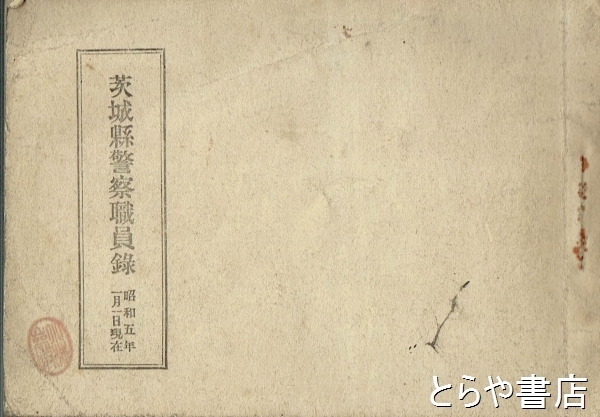 茨城縣警察職員錄
昭和五年
一月一日現在
とらや書店